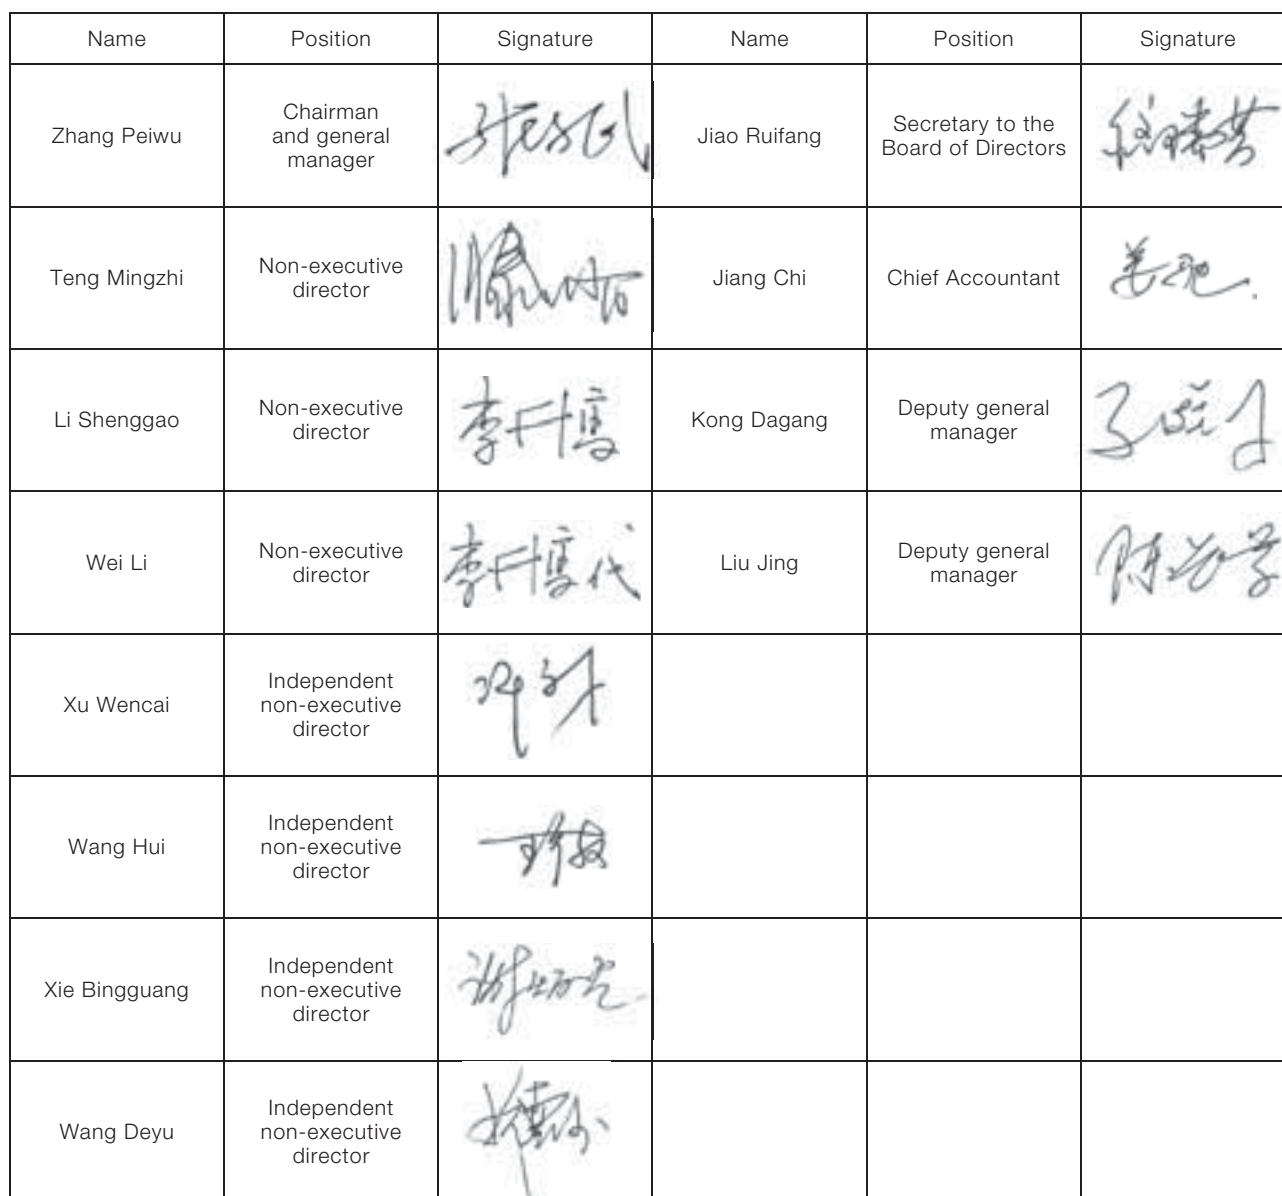 Name Position Signature Name Position Signature
Zhang Peiwu
Chairman
and general
manager
Jiao Ruifang
Secretary to the
Board of Directors
Teng Mingzhi
Non-executive
director
Jiang Chi
Chief Accountant
Li Shenggao
Non-executive
director
李升高
Kong Dagang
Deputy general
manager
Wei Li
Non-executive
director
李升高代
Liu Jing
Deputy general
manager
Xu Wencai
Independent
non-executive
director
Wang Hui
Independent
non-executive
director
Xie Bingguang
Independent
non-executive
director
Wang Deyu
Independent
non-executive
director